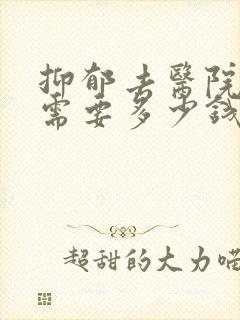 抑郁去醫院
需要多少錢
超甜的大力喵